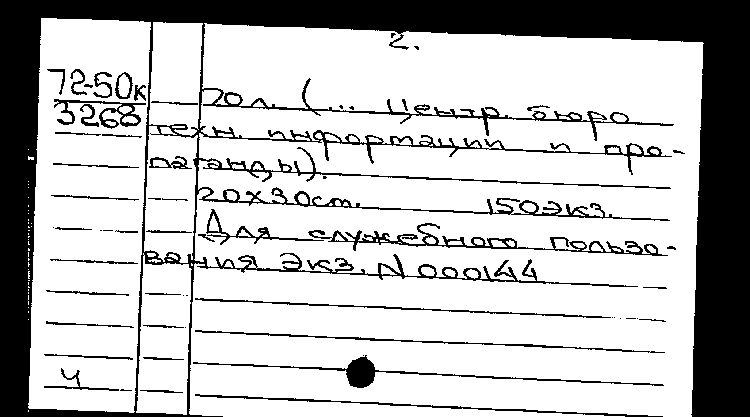 2.
72-50к
3268
20 л. (... Центр. бюро
техн. информации и про-
паганды).
20х30см. 150экз.
Для служебного пользо-
вания Экз. N 000144
Ч